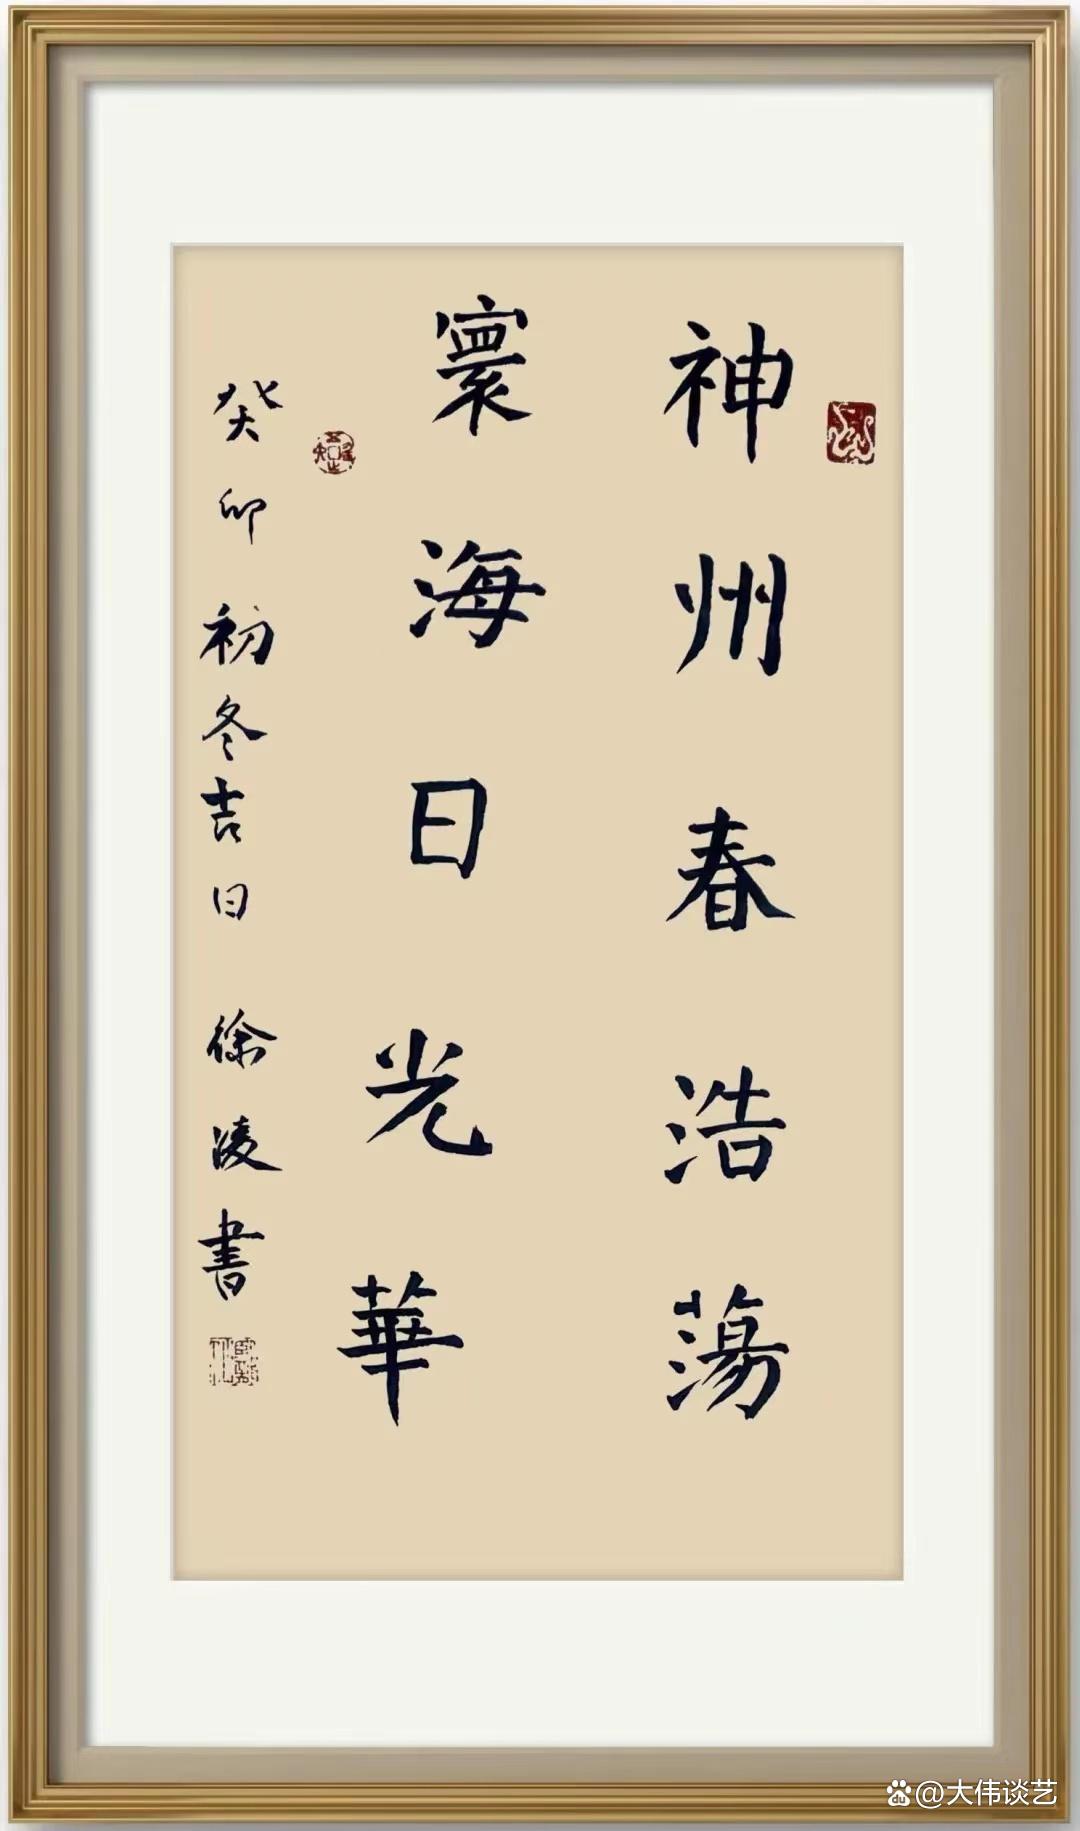 神州春浩蕩
寰海日光華
癸卯初冬吉日 徐凌書
@大伟谈艺